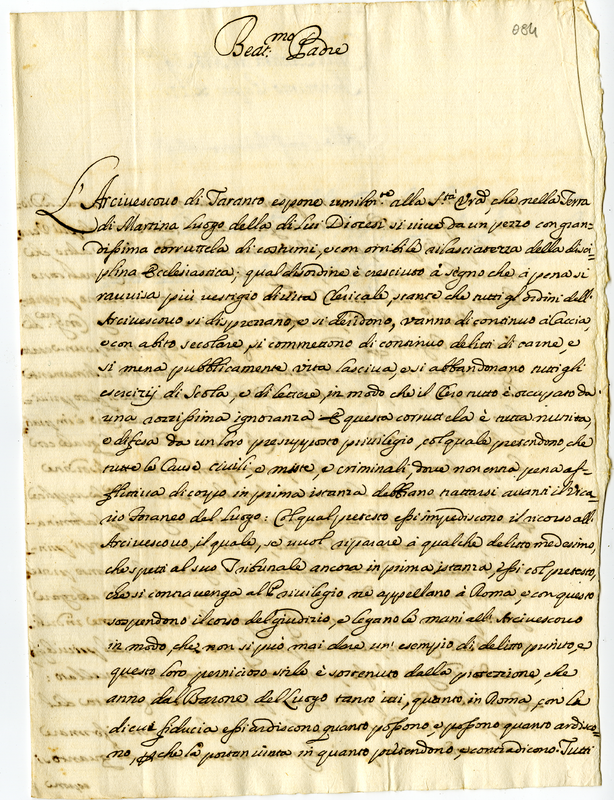 084
Beat.mo Padre
L'Arcivescovo di Taranto espone umilm.te alla S.tà Vra, che nella Terra
di Martina luogo della di lui Diocesi si vive da un pezzo con gran-
dissima corruttela di costumi, e con orribile rilasciatezza della disci-
plina Ecclesiastica; qual disordine è cresciuto à segno che à pena si
ravvisa più vestigio di vita Clericale, stante che tutti gl'ordini dell'
Arcivescovo si disprezzano, e si deridono, vanno di continuo à caccia
e con abito secolare, si commettono di continuo delitti di carne, e
si mena pubblicamente vita lasciva, e si abbandonano tutti gli
esercizij di Scola, e di lettere, in modo che il Clero tutto è occupato da
una rozzissima ignoranza. E questa corruttela è tutta nutrita,
e difesa da un loro presupposto privilegio, col quale pretendono, che
tutte le Cause civili, e miste, e criminali dove non entra pena af-
flittiva di corpo in prima istanza debbiano trattarsi avanti il Vica-
rio foraneo del luogo: Col qual pretesto essi impediscono il ricorso all'
Arcivescovo, il quale, se vuol riparare à qualche delitto medesimo,
che spetti al suo Tribunale ancora in prima istanza, essi col pretesto,
che si contravenga al Privilegio ne appellano à Roma, e con questo
sospendono il corso del giudizio, e legano le mani all'Arcivescovo
in modo, che non si può mai dare un'esempio di delitto punito, e
questo loro pernicioso stile è sostenuto dalla protezione, che
anno dal Barone del Luogo tanto ivi, quanto in Roma, con la
di cui fiducia essi ardiscono quanto possono, e possono quanto ardisco-
no, che la portan vinta in quanto pretendono, e contradicono. Tutti